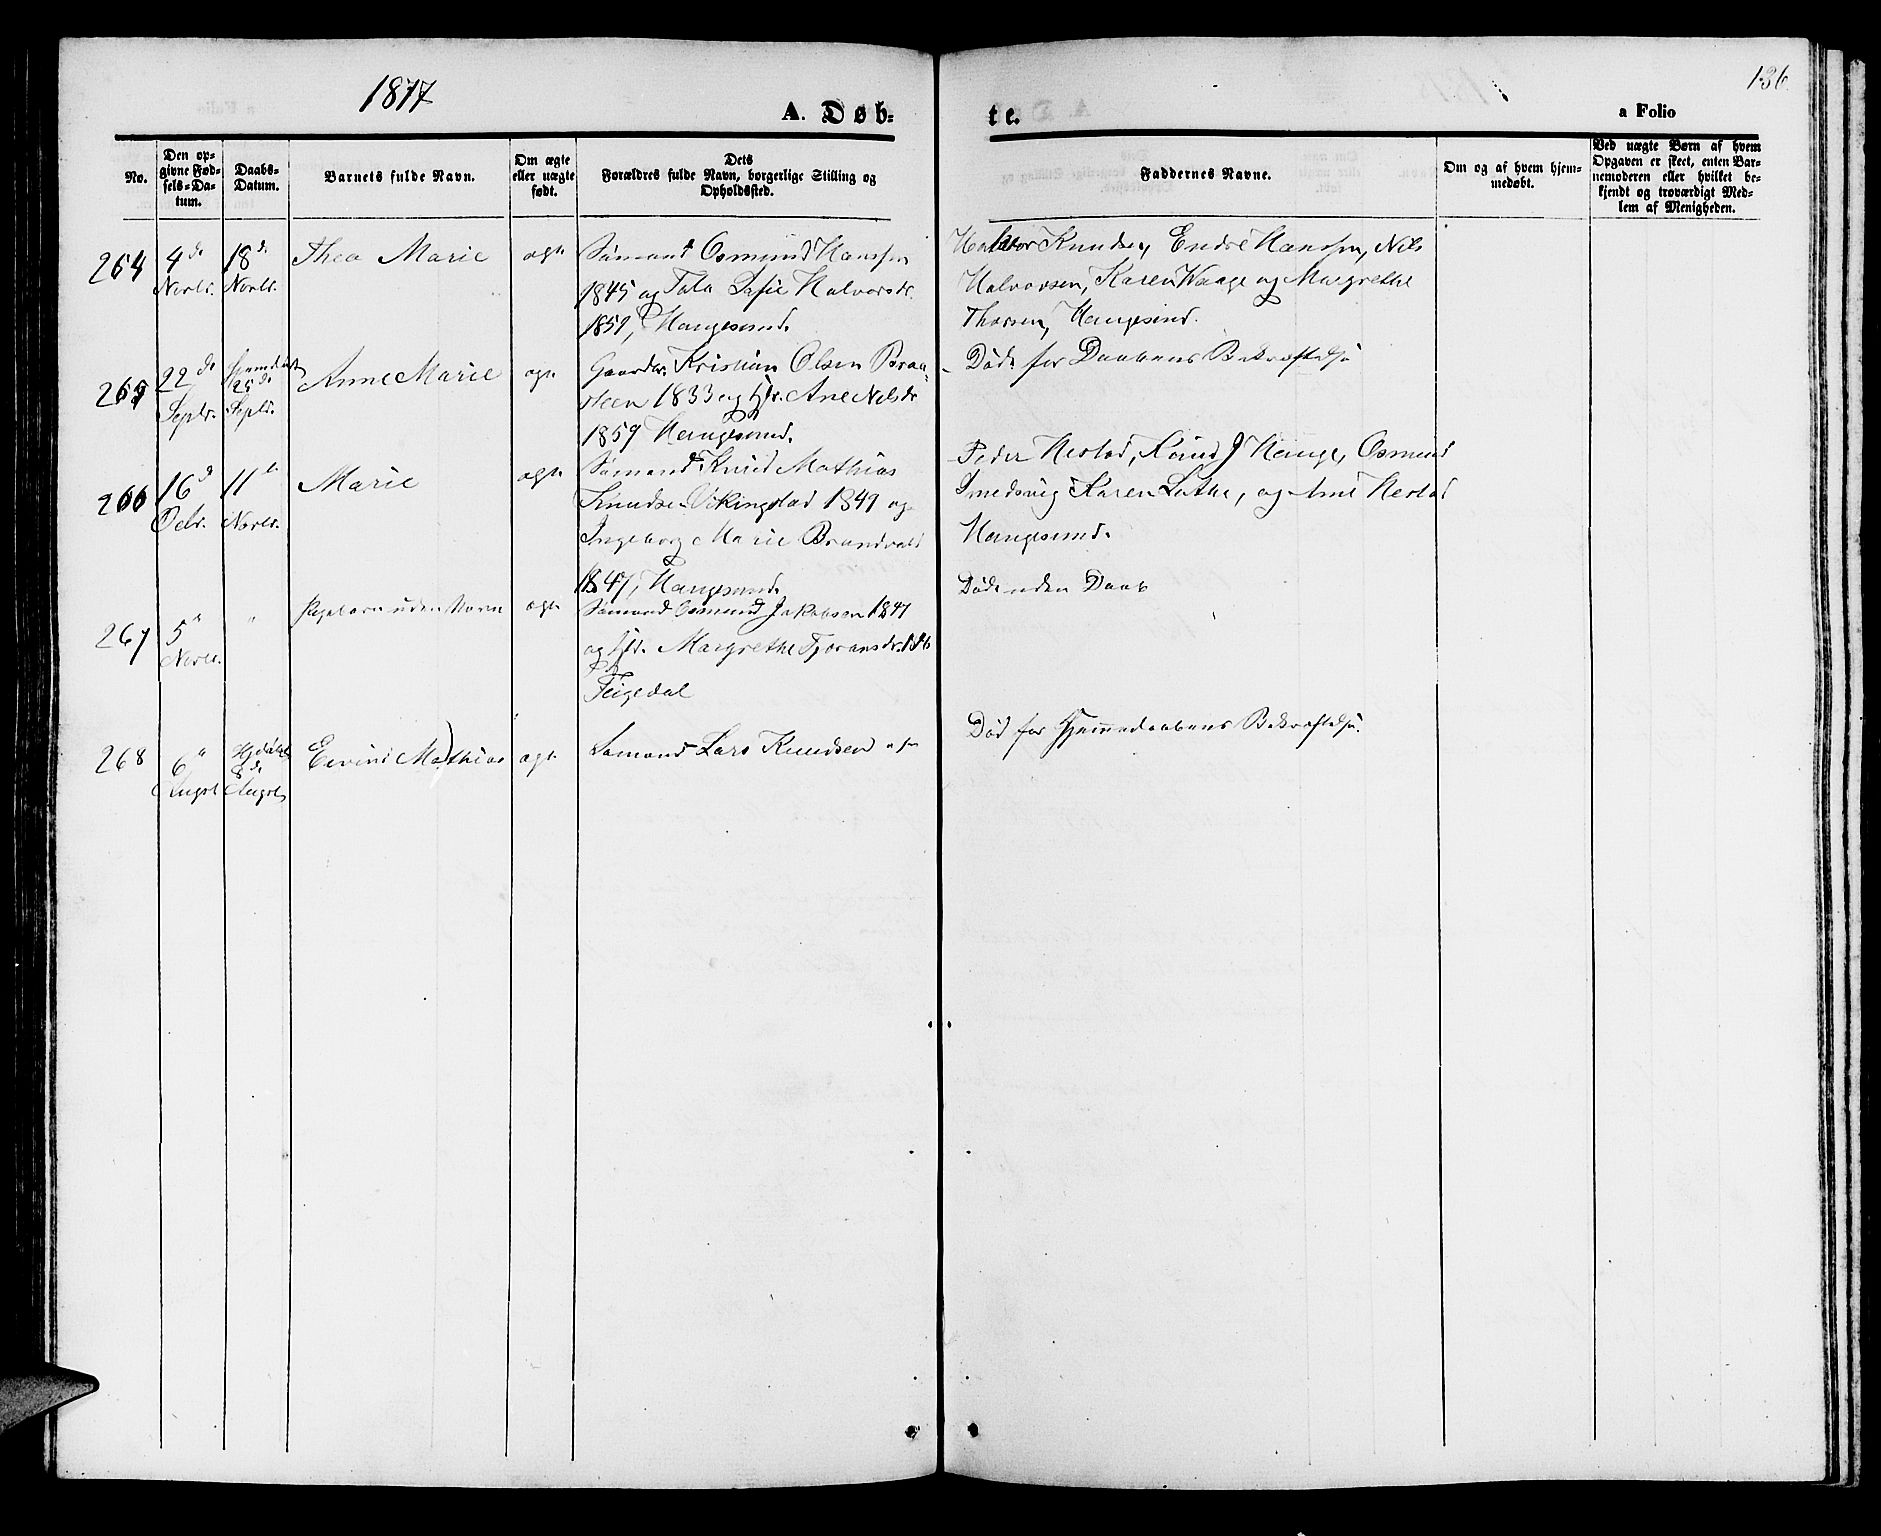 1877
136
A. Døb-
te.
a Folio
No.
Den op-
givne Fød-
sels-Da-
tum.
Daabs-
Datum.
Barnets fulde Navn.
Om ægte
eller uægte
født.
Dets
Forældres fulde Navn, borgerlige Stilling og
Opholdssted.
Faddernes Navne.
Om og af hvem hjem-
medøbt.
Ved uægte Børn af hvem
Opgaven er skeet, enten Bar-
nemoderen eller hvilket be-
kjendt og troværdigt Med-
lem af Menigheden.
264
4de
Novbr.
18de
Novbr.
Thea Marie
ægte
Sømand Osmund Hanssen
1845 og Tala Sofie Halvorsdr.
1851, Haugesund.
Halvor Knudsen, Endre Hanssen, Nils
Halvorsen, Karen Waage og Margrethe
Thorsen, Haugesund.
265
22de
Septbr.
Hjemdøbt
25de
Septbr.
Anne Marie
ægte
Gaardbr. Kristian Olsen Braa-
steen 1833 og Hr. Ane Nilsdr
1859 Haugesund.
Døde for Daabens Bekræftelse
266
16d
Octbr.
11te
Novbr.
Marie
ægte
Sømand Knud Mathias
Knudsen Vikingstad 1849 og
Ingeborg Marie Brandvold
1847, Haugesund.
Peder Nestad, Knud J Hauge, Osmund
Smedsvig Karen Lothe, og Ane Nestad
Haugesund.
267
5"
Novbr.
"
Pigebarn uden Navn
ægte
Sømand Osmund Jakobsen 1841
og Hr. Margrethe Tjøransdr.
Feigedal
Døde uden Daab
268
6"
Augst
Hjdøbt
8de
Augst
Eivind Mathias
ægte
Sømand Lars Knudsen
Død for Hjemmedaabens Bekræftelse.